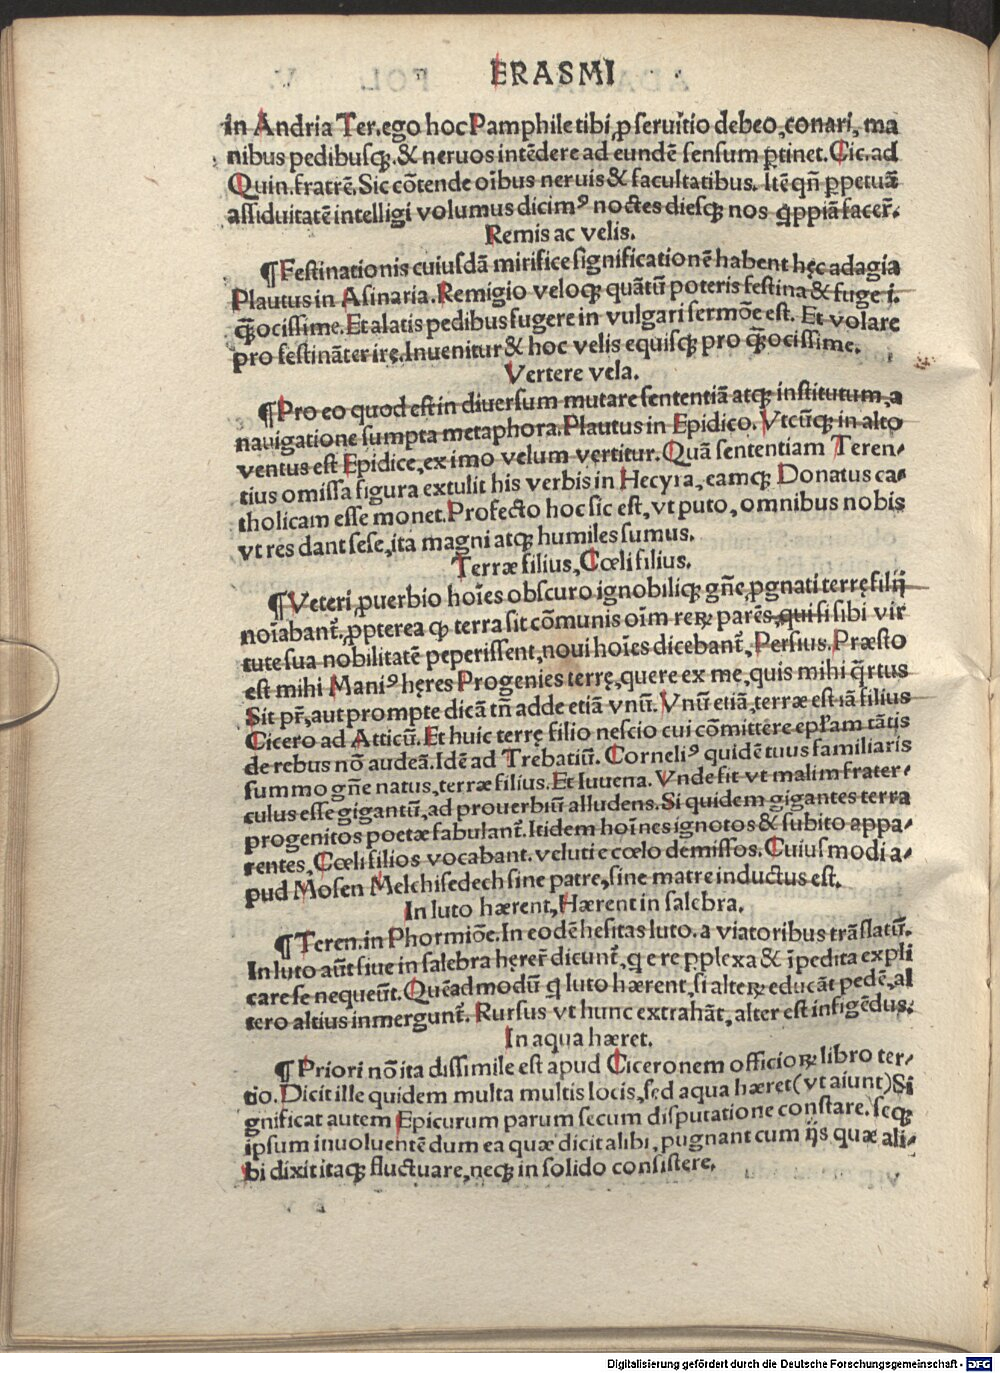 ERASMI
in Andria Ter. ego hoc Pamphile tibi, ꝓ seruitio debeo, conari, ma
nibus pedibusqꝫ. & neruos intēdere ad eundē sensum ꝑtinet. Cic. ad
Quin. fratrē. Sic cōtende oībus neruis & facultatibus. Itē qn̄ ꝑpetuā
assiduitatē intelligi volumus dicimꝰ noctes diesqꝫ nos q̄ppiā facer̄.
Remis ac velis.
¶ Festinationis cuiusdā mirifice significationē habent hęc adagia
Plautus in Asinaria. Remigio veloqꝫ quātū poteris festina & fuge .i.
q̄ꝫocissime. Et alatis pedibus fugere in vulgari sermōe est. Et volare
pro festināter irę. Inuenitur & hoc velis equisqꝫ pro q̄ꝫocissime.
Vertere vela.
¶ Pro eo quod est in diuersum mutare sententiā atqꝫ institutum, a
nauigatione sumpta metaphora. Plautus in Epidico. Vtcūqꝫ in alto
ventus est Epidice, ex imo velum vertitur. Quā sententiam Teren-
tius omissa figura extulit his verbis in Hecyra, eamqꝫ Donatus ca-
tholicam esse monet. Profecto hoc sic est, vt puto, omnibus nobis
vt res dant sese, ita magni atqꝫ humiles sumus.
Terræ filius, Cœli filius.
¶ Veteri ꝓuerbio hoīes obscuro ignobiliqꝫ gn̄e, ꝓgnati terrę filij
noīabant̄. ꝓpterea ꝙ terra sit cōmunis oīm reꝝ parēs, qui si sibi vir
tute sua nobilitatē peperissent, noui hoīes dicebant̄. Persius. Præsto
est mihi Maniꝰ hęres Progenies terrę, quere ex me, quis mihi q̄rtus
Sit pr̄, aut prompte dicā tn̄ adde etiā vnū. Vnū etiā, terræ est iā filius
Cicero ad Atticū. Et huic terrę filio nescio cui cōmittere epl̄am tātis
de rebus nō audeā. Idē ad Trebatiū. Corneliꝰ quidē tuus familiaris
summo gn̄e natus, terræ filius. Et Iuuena. Vnde fit vt malim frater-
culus esse gigantū, ad prouerbiū alludens. Si quidem gigantes terra
progenitos poetæ fabulant̄. Itidem hoīnes ignotos & subito appa-
rentes, Cœli filios vocabant. veluti e cœlo demissos. Cuiusmodi a-
pud Mosen Melchisedech sine patre, sine matre inductus est.
In luto hærent, Hærent in salebra.
¶ Teren. in Phormiōe. In eodē hesitas luto. a viatoribus trāslatū.
In luto aūt siue in salebra hęrer̄ dicunt̄, q̄ e re ꝑplexa & īpedita expli
care se nequeūt. Quēadmodū q̄ luto hærent, si alteꝝ educāt pedē, al
tero altius inmergunt̄. Rursus vt hunc extrahāt, alter est infigēdus.
In aqua hæret.
¶ Priori nō ita dissimile est apud Ciceronem officioꝝ libro ter-
tio. Dicit ille quidem multa multis locis, sed aqua hæret (vt aiunt) Si
gnificat autem Epicurum parum secum disputatione constare. seqꝫ
ipsum inuoluentē dum ea quæ dicit alibi, pugnant cum ijs quæ ali-
bi dixit itaqꝫ fluctuare, neqꝫ in solido consistere.
Digitalisierung gefördert durch die Deutsche Forschungsgemeinschaft - DFG